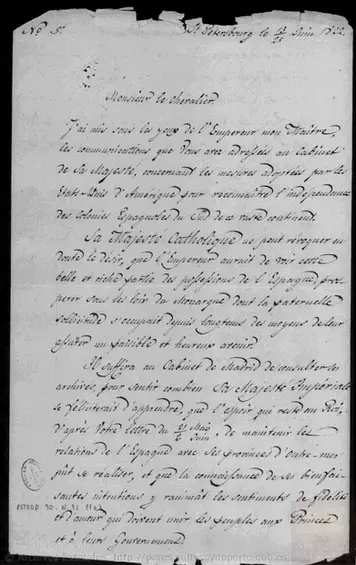 Nº 5.
St Pétersbourg le 13/25 Juin 1822.
Monsieur le Chevalier.
J'ai mis sous les yeux de l'Empereur mon Maître,
les communications que vous avez adressées au Cabinet
de Sa Majesté, concernant les mesures adoptées par les
États-Unis d'Amérique pour reconnaître l'indépendance
des Colonies Espagnoles du Sud de ce vaste continent.
Sa Majesté Catholique ne peut révoquer en
doute le désir, que l'Empereur aurait de voir cette
belle et riche partie des possessions de l'Espagne, pros-
pérer sous les loix du Monarque dont la paternelle
sollicitude s'occupait depuis longtems des moyens de leur
assurer un paisible et heureux avenir.
Il suffira au Cabinet de Madrid de consulter ses
archives, pour sentir combien Sa Majesté Impériale
se féliciterait d'apprendre, que l'espoir qui reste au Roi,
d'après Votre lettre du Mai/Juin, de maintenir les
relations de l'Espagne avec ses provinces d'outre-mer
pût se réaliser, et que la connaissance de ses bienfai-
santes intentions y ranimât les sentimens de fidélité
et d'amour qui doivent unir les peuples aux Princes
et à leurs Gouvernemens
ESTADO 90